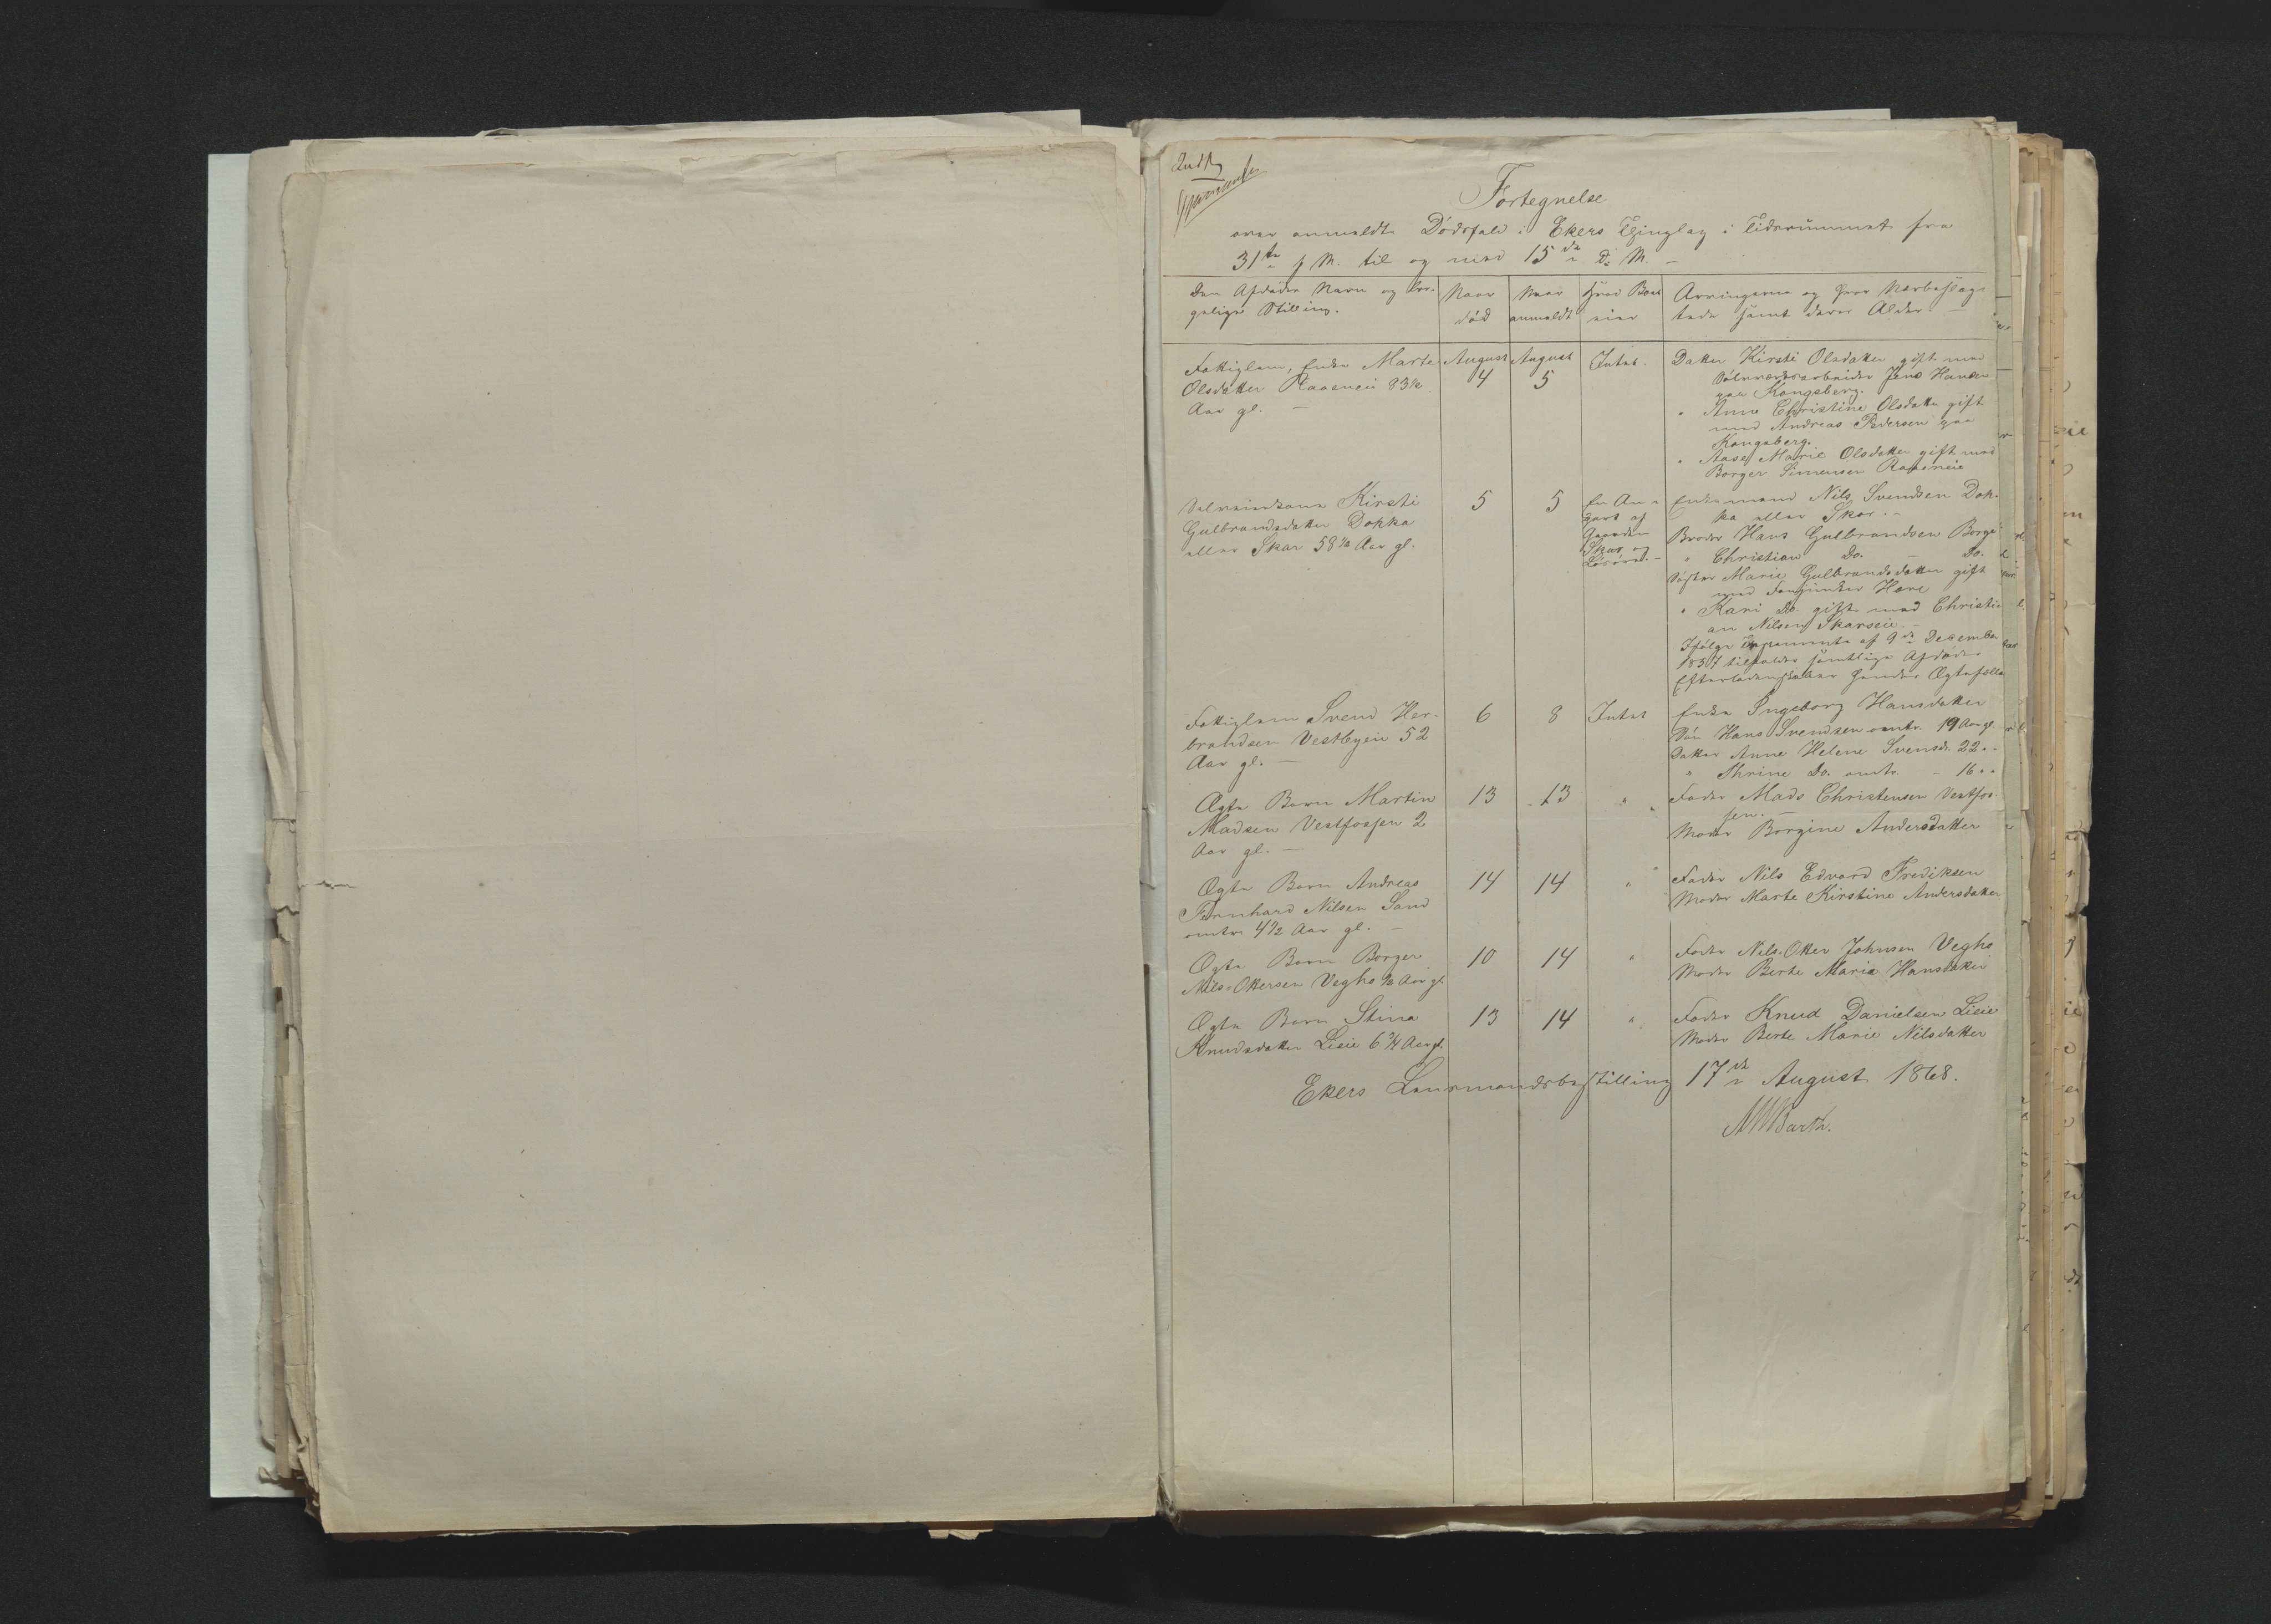 Fortegnelse
over anmeldte Dödsfald i Ekers Thinglag i Tidsrummet fra
31te f. M. til og med 15de d. M. –
Den Afdødes Navn og bor-
gelige Stilling.
Naar
död
Naar
anmeldt
Hvad Boet
eier
Arvingerne og hvor nærbeslæg-
tede samt deres Alder. –
Fattiglem, Enke Marte
Olsdatter Raaeneie 83½
Aar gl. –
August
4
August
5
Intet.
Datter Kirsti Olsdatter gift med
Sölvværksarbeider Jens Hansen
paa Kongsberg.
" Anne Christine Olsdatter gift
med Andreas Pedersen paa
Kongsberg.
" Aase Marie Olsdatter gift med
Borger Simensen Raaeneie
Selveierkone Kirsti
Gulbrandsdatter Dokka
eller Skar 58½ Aar gl.
5
5
En An-
part af
Gaarden
Skar og
Lösöre. –
Enkemand Nils Svendsen Dok-
ka eller Skar. –
Broder Hans Gulbrandsen Borge
" Christian Do. – Do.
Söster Marie Gulbrandsdatter gift
med Hære
" Kari Do. gift med Christi-
an Nilsen Skarseie. –
Ifölge Testamente af 9de December
1857 tilfalder samtlige Afdödes
Efterladenskaber hendes Ægtefælle
Fattiglem Svend Her-
brandsen Vestbyeie 52
Aar gl. –
6
8
Intet
Enke Ingeborg Hansdatter
Sön Hans Svendsen omtr. 19 Aar gl.
Datter Anne Helene Svensdr. 22 " "
" Thrine Do. omtr. – 16 " "
Ægte Barn Martin
Madsen Vestfossen 2
Aar gl. –
13
13
"
Fader Mads Christensen Vestfos-
sen. –
Moder Borgine Andersdatter
Ægte Barn Andreas
Nilsen Sand
omtr. 4½ Aar gl. –
14
14
"
Fader Nils Edvard Frediksen
Moder Marte Kirstine Andersdatter
Ægte Barn Borger
Nils-Ottersen Vegho ½ Aar gl.
10
14
"
Fader Nils-Otter Johnsen Vegho
Moder Berte Maria Hansdatter
Ægte Barn Stina
Knudsdatter Lieie 6¾ Aar gl.
13
14
"
Fader Knud Danielsen Lieie
Moder Berte Marie Nilsdatter
Ekers Lensmandsbestilling 17de August 1868.
Barth.